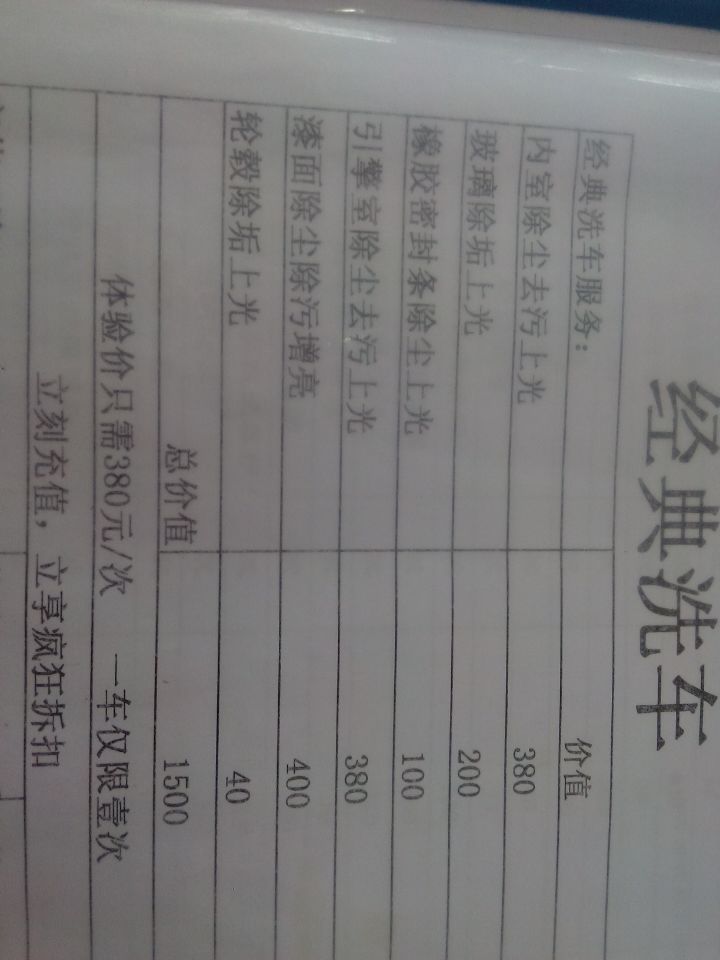 经典洗车
经典洗车服务： 价值
内室除尘去污上光 380
玻璃除垢上光 200
橡胶密封条除尘上光 100
引擎室除尘去污上光 380
漆面除尘除污增亮 400
轮毂除垢上光 40
总价值 1500
体验价只需380元/次 一车仅限壹次
立刻充值，立享疯狂折扣